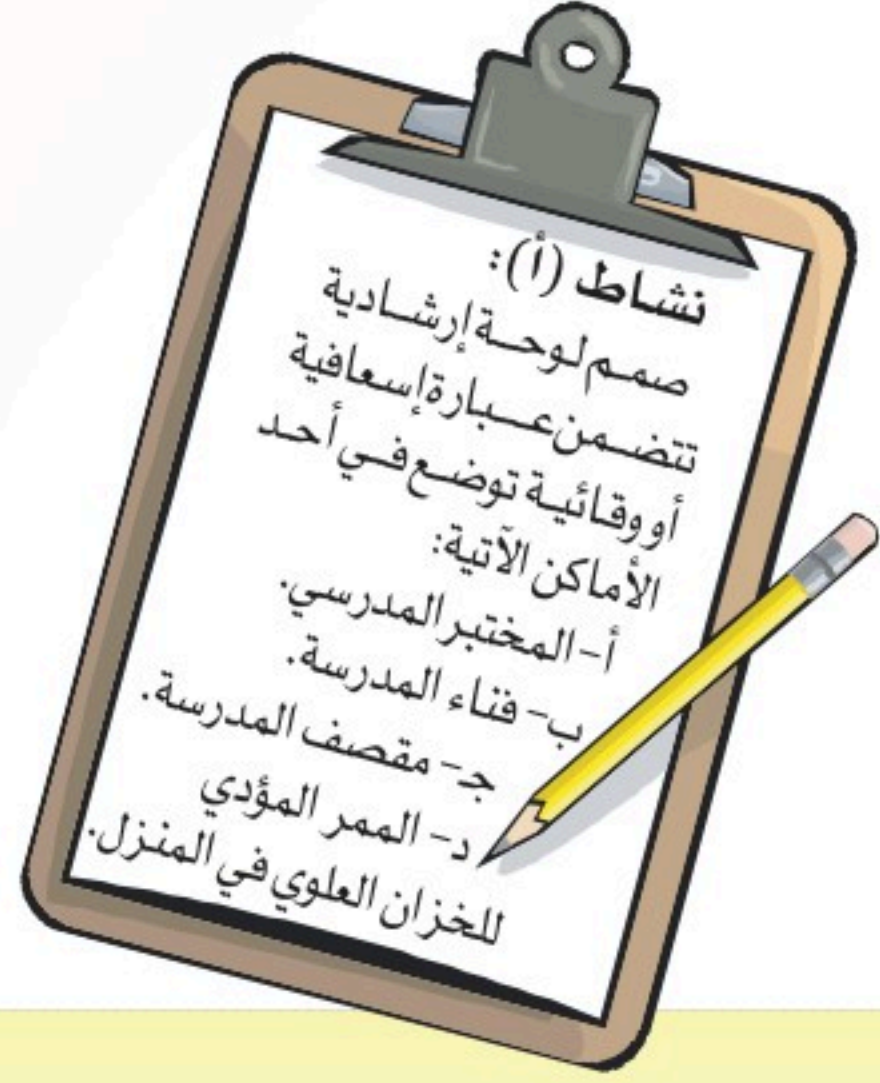 نشاط (أ):
صمم لوحة إرشادية
تتضمن عبارة إسعافية
أو وقائية توضع في أحد
الأماكن الآتية:
أ- المختبر المدرسي.
ب- فناء المدرسة.
جـ- مقصف المدرسة.
د- الممر المؤدي
للخزان العلوي في المنزل.